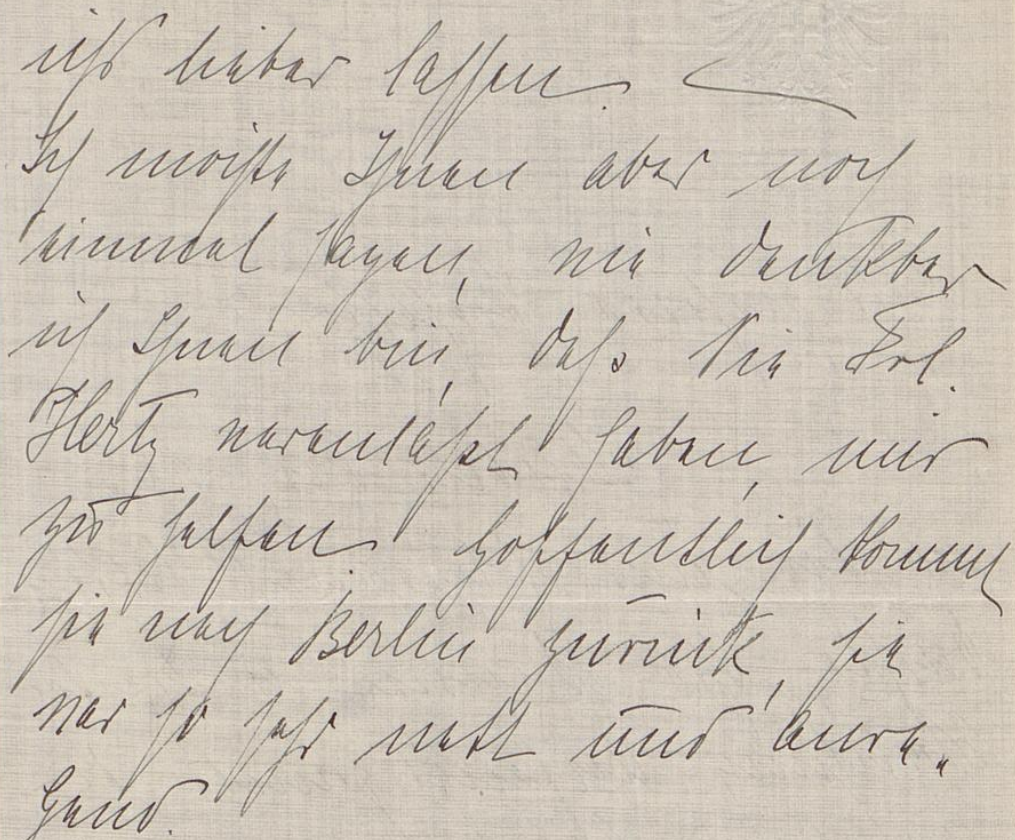 ihr lieber lassen.
Ich möchte Ihnen aber noch
einmal sagen, wie dankbar
ich Ihnen bin, daß Sie Frl.
Hertz veranlaßt haben, mir
zu helfen. Hoffentlich kommt
sie nach Berlin zurück, sie
war so sehr nett und anre-
gend.